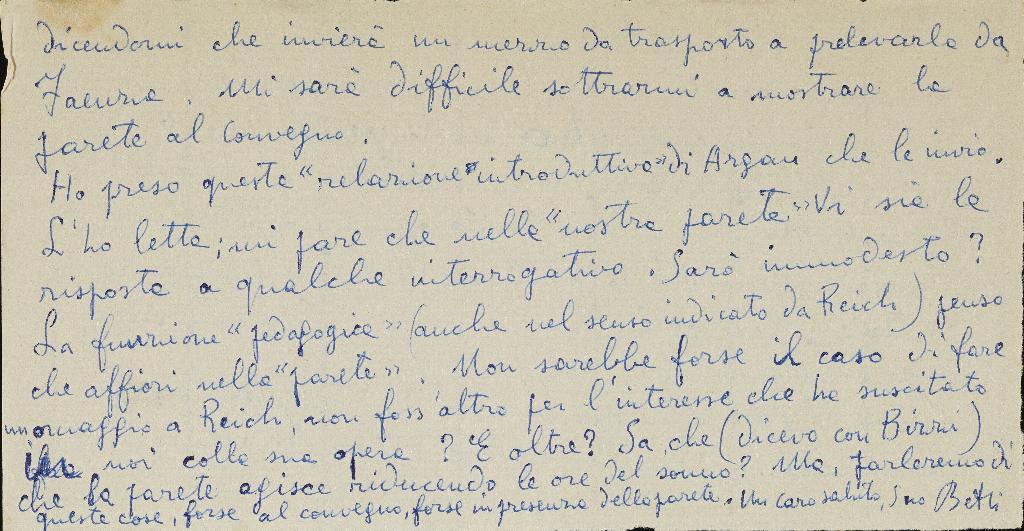 dicendomi che invierà un mezzo da trasporto a prelevarla da
Faenza. Mi sarà difficile sottrarmi a mostrare la
parete al Convegno.
Ho preso questa "relazione introduttiva" di Argan che le invio.
L'ho letta; mi pare che nella "nostra parete" vi sia la
risposta a qualche interrogativo. Sarò immodesto?
La funzione "pedagogica" (anche nel senso indicato da Reich) penso
che affiori nella "parete". Non sarebbe forse il caso di fare
un omaggio a Reich, non foss'altro per l'interesse che ha suscitato
in noi colla sua opera? E oltre? Sa, che (dicevo con Bizzi)
che la parete agisce riducendo le ore del sonno? Ma, parleremo di
queste cose, forse al convegno, forse in presenza della parete. Un caro saluto, Suo Betti